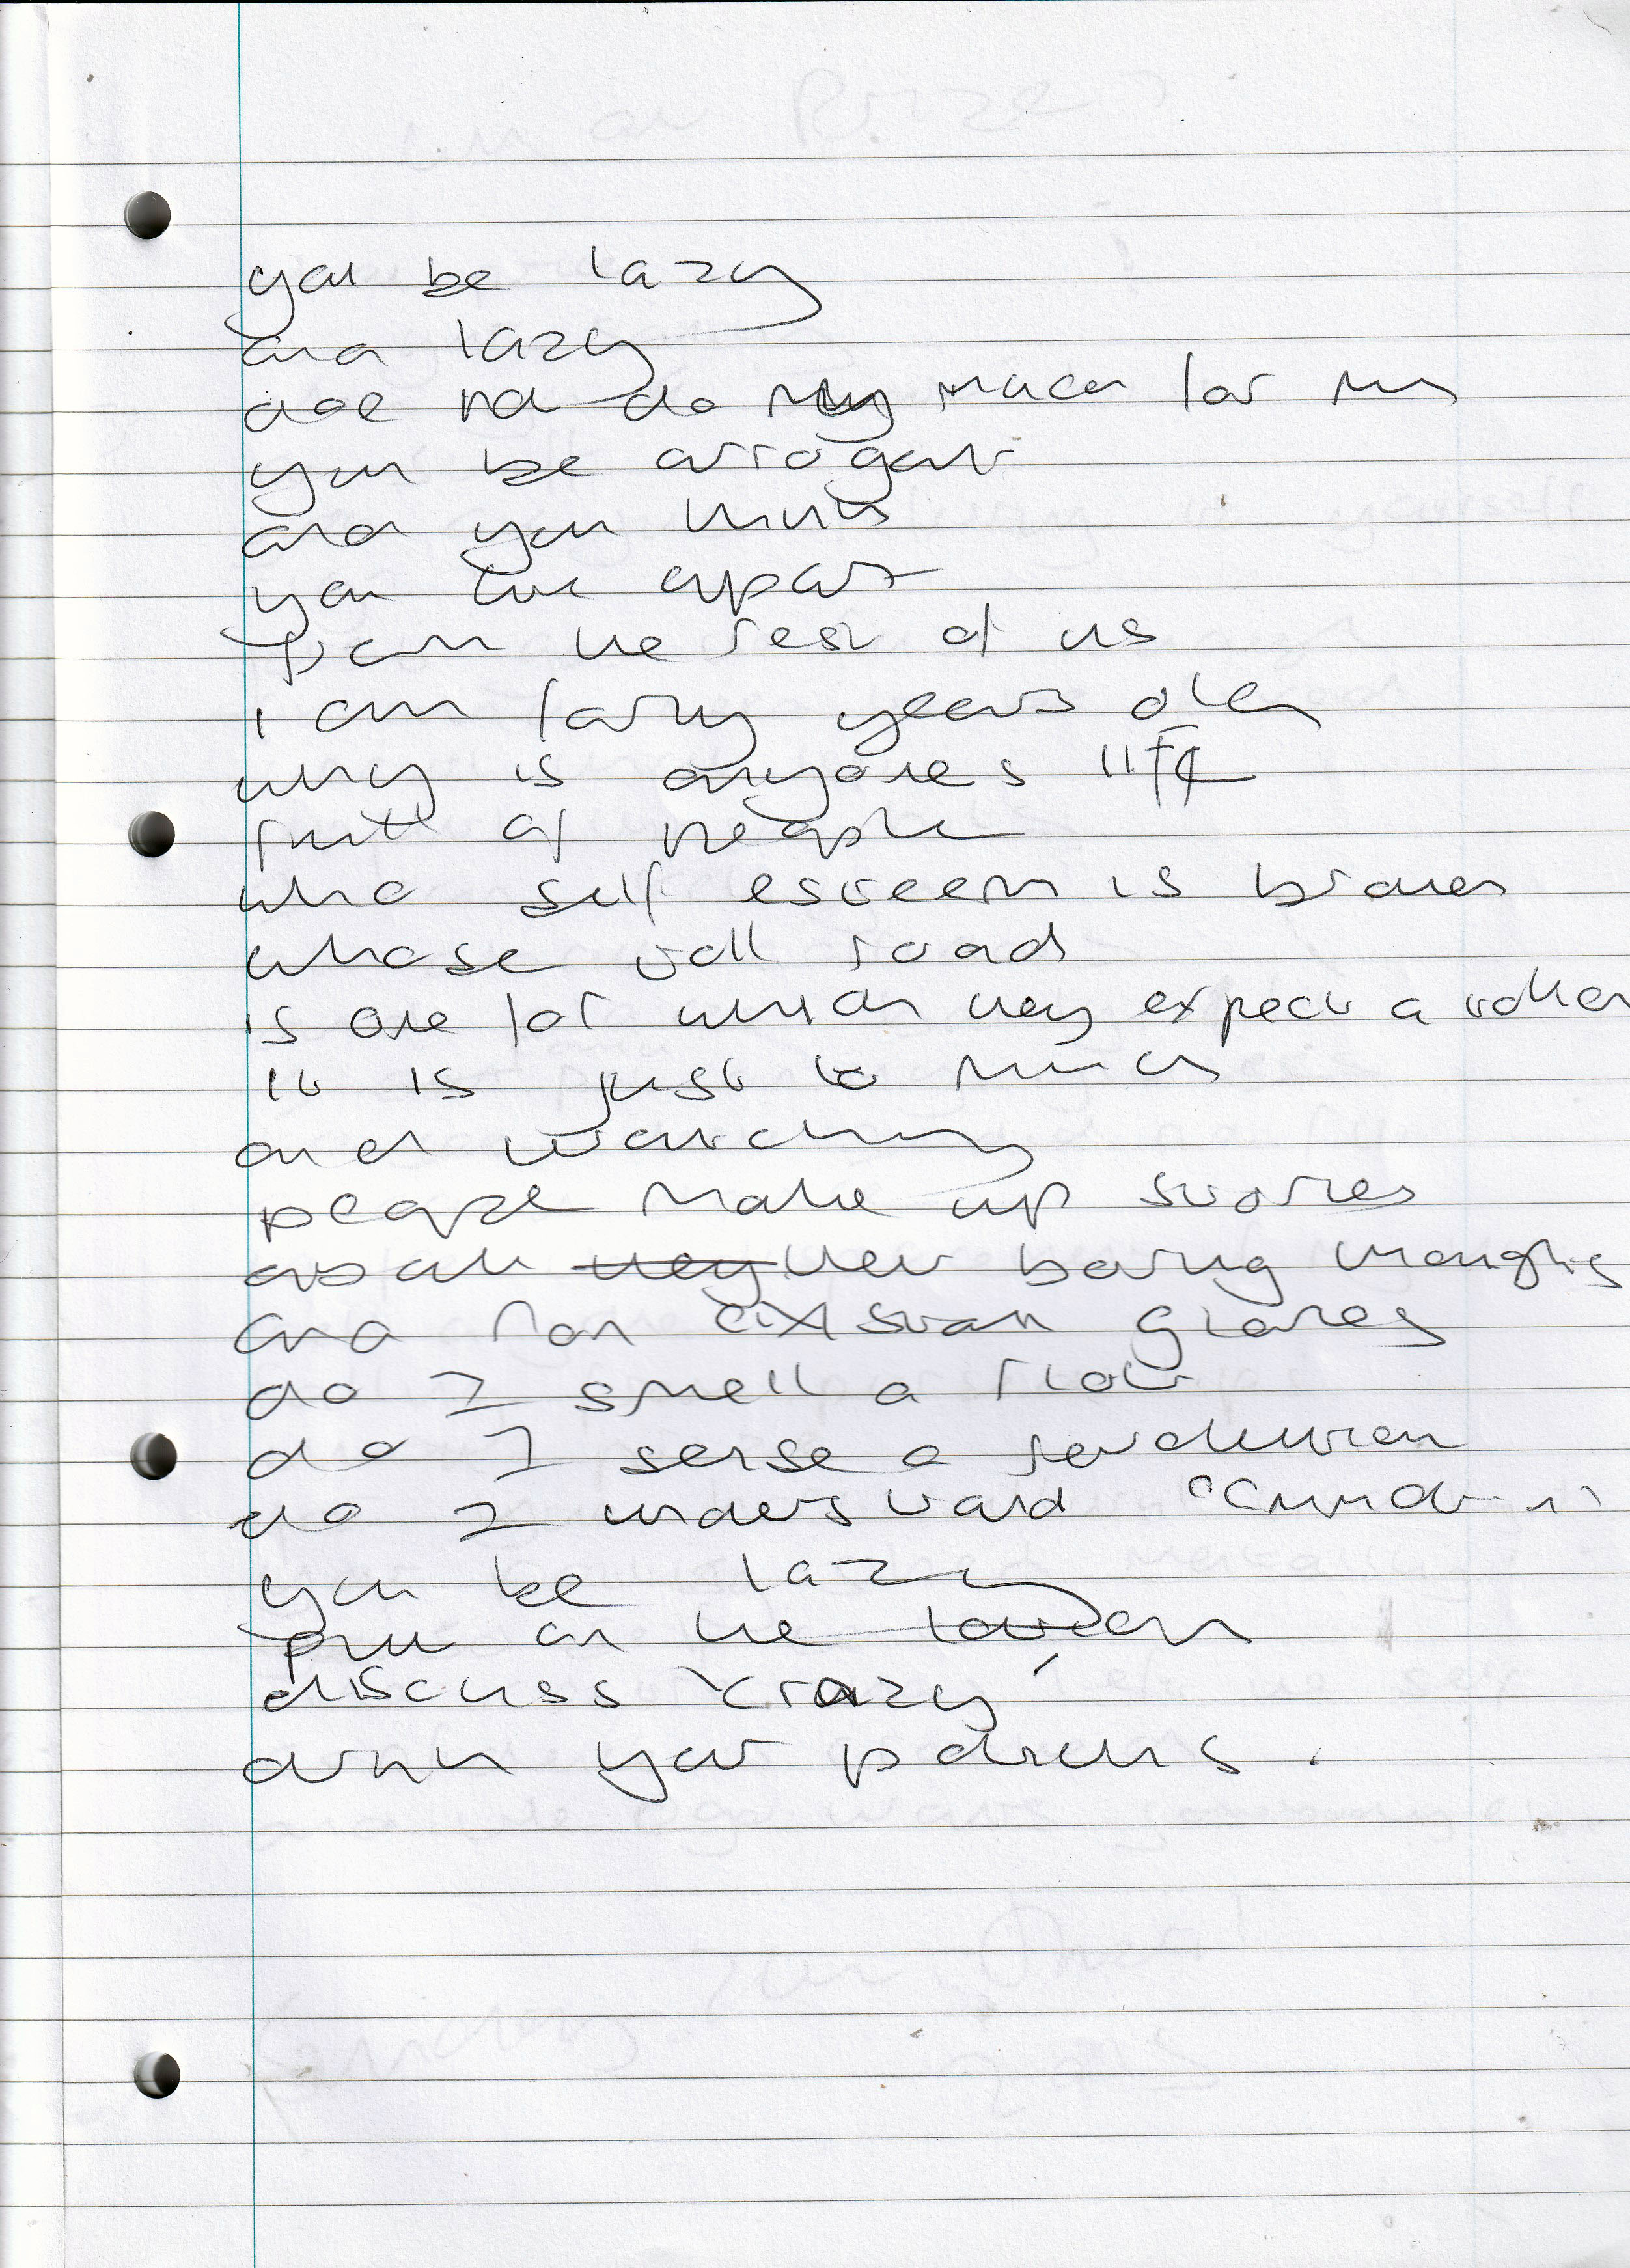 you be lazy
and lazy
doe not do much for me
you be arrogant
and you think
you live apart
from the rest of us
i am forty years old
why is anyones life
full of people
who self esteem is broken
whose toll road
is one for which they expect a token
it is just to much
and watching
people make up stories
about their boring thoughts
and gloves
do I smell a riot
do I sense a revolution
do I understand
you be lazy
put on the
discuss 'crazy'
with your patients.